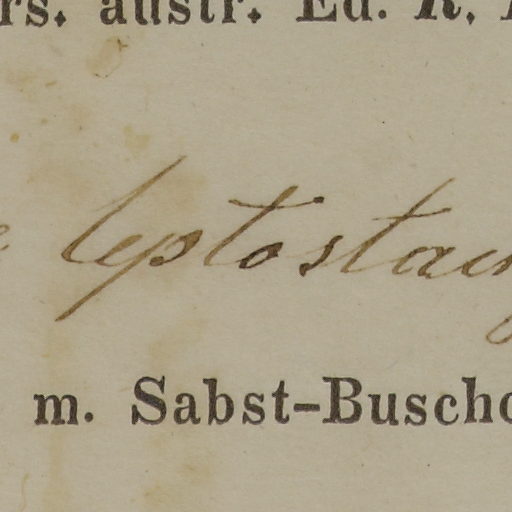 rs. austr. Ed. R.
leptostauy
m. Sabst-Buscho